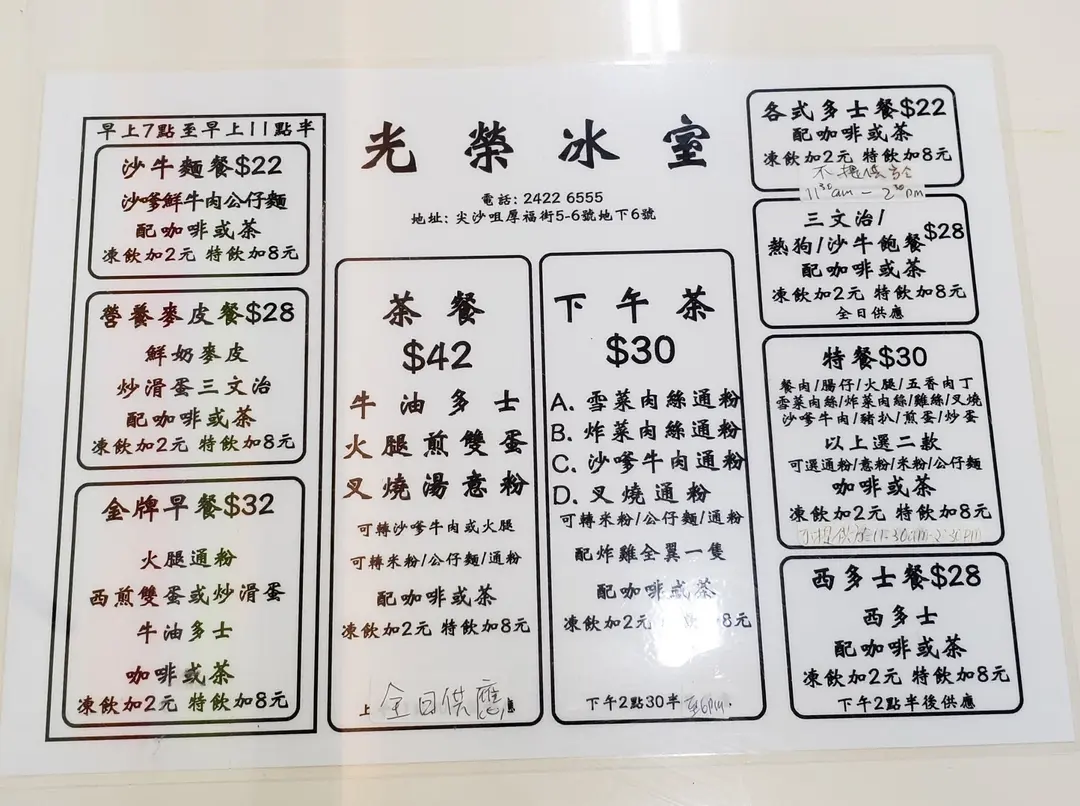 早上7點至早上11點半
沙牛麵餐$22
沙嗲鮮牛肉公仔麵
配咖啡或茶
凍飲加2元 特飲加8元
營養麥皮餐$28
鮮奶麥皮
炒滑蛋三文治
配咖啡或茶
凍飲加2元 特飲加8元
金牌早餐$32
火腿通粉
西煎雙蛋或炒滑蛋
牛油多士
咖啡或茶
凍飲加2元 特飲加8元
光榮冰室
電話: 2422 6555
地址: 尖沙咀厚福街5-6號地下6號
茶餐
$42
牛油多士
火腿煎雙蛋
叉燒湯意粉
可轉沙嗲牛肉或火腿
可轉米粉/公仔麵/通粉
配咖啡或茶
凍飲加2元 特飲加8元
上 全日供應
下午茶
$30
A. 雪菜肉絲通粉
B. 炸菜肉絲通粉
C. 沙嗲牛肉通粉
D. 叉燒通粉
可轉米粉/公仔麵/通粉
配炸雞全翼一隻
配咖啡或茶
凍飲加2元 8元
下午2點30半至6pm.
各式多士餐$22
配咖啡或茶
凍飲加2元 特飲加8元
11³⁰am - 2³⁰pm
三文治/
熱狗/沙牛飽餐$28
配咖啡或茶
凍飲加2元 特飲加8元
全日供應
特餐$30
餐肉/腸仔/火腿/五香肉丁
雪菜肉絲/炸菜肉絲/雞絲/叉燒
沙嗲牛肉/豬扒/煎蛋/炒蛋
以上選二款
可選通粉/意粉/米粉/公仔麵
咖啡或茶
凍飲加2元 特飲加8元
西多士餐$28
西多士
配咖啡或茶
凍飲加2元 特飲加8元
下午2點半後供應